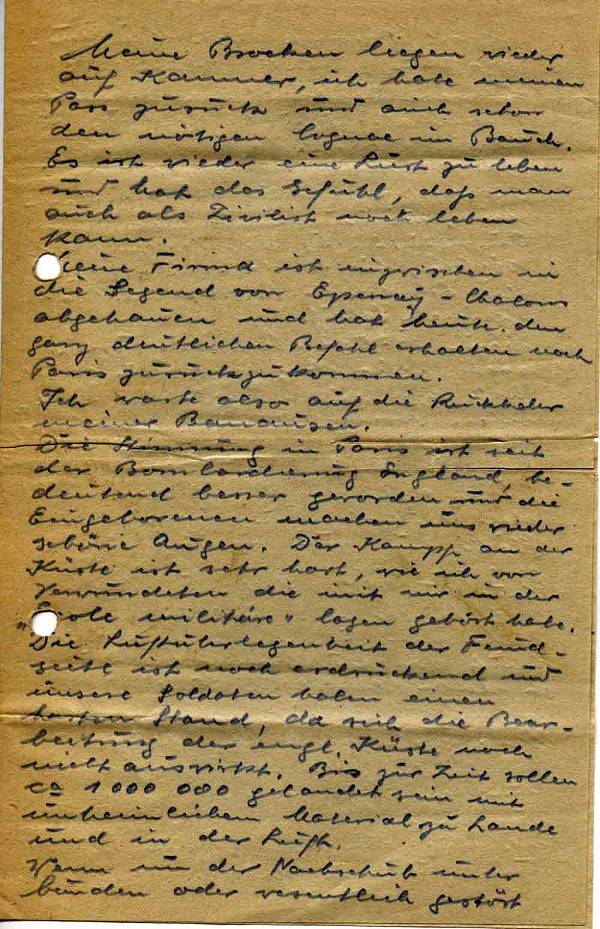 Meine Brocken liegen wieder
auf Kammer, ich habe meinen
Pass zurück und auch schon
den nötigen Cognac im Bauch.
Es ist wieder eine Lust zu leben
und hat das Gefühl, daß man
auch als Zivilist noch leben
kann.
Meine Firma ist inzwischen in
die Gegend von Epernay - Chalons
abgehauen und hat heute den
ganz deutlichen Befehl erhalten nach
Paris zurückzukommen.
Ich warte also auf die Rückkehr
meiner Banausen.
Die Stimmung in Paris ist seit
der Bombardierung Englands, be-
deutend besser geworden und die
Eingeborenen machen uns wieder
schöne Augen. Der Kampf an der
Küste ist sehr hart, wie ich von
Verwundeten die mit mir in der
"Ecole militäre" lagen gehört habe.
Die Luftüberlegenheit der Feind-
seite ist noch erdrückend und
unsere Soldaten haben einen
harten Stand, da sich die Bear-
beitung der engl. Küste noch
nicht auswirkt. Bis zur Zeit sollen
ca 1 000 000 gelandet sein mit
unheimlichem Material zu Lande
und in der Luft.
Wenn nun der Nachschub unter
bunden oder wesentlich gestört